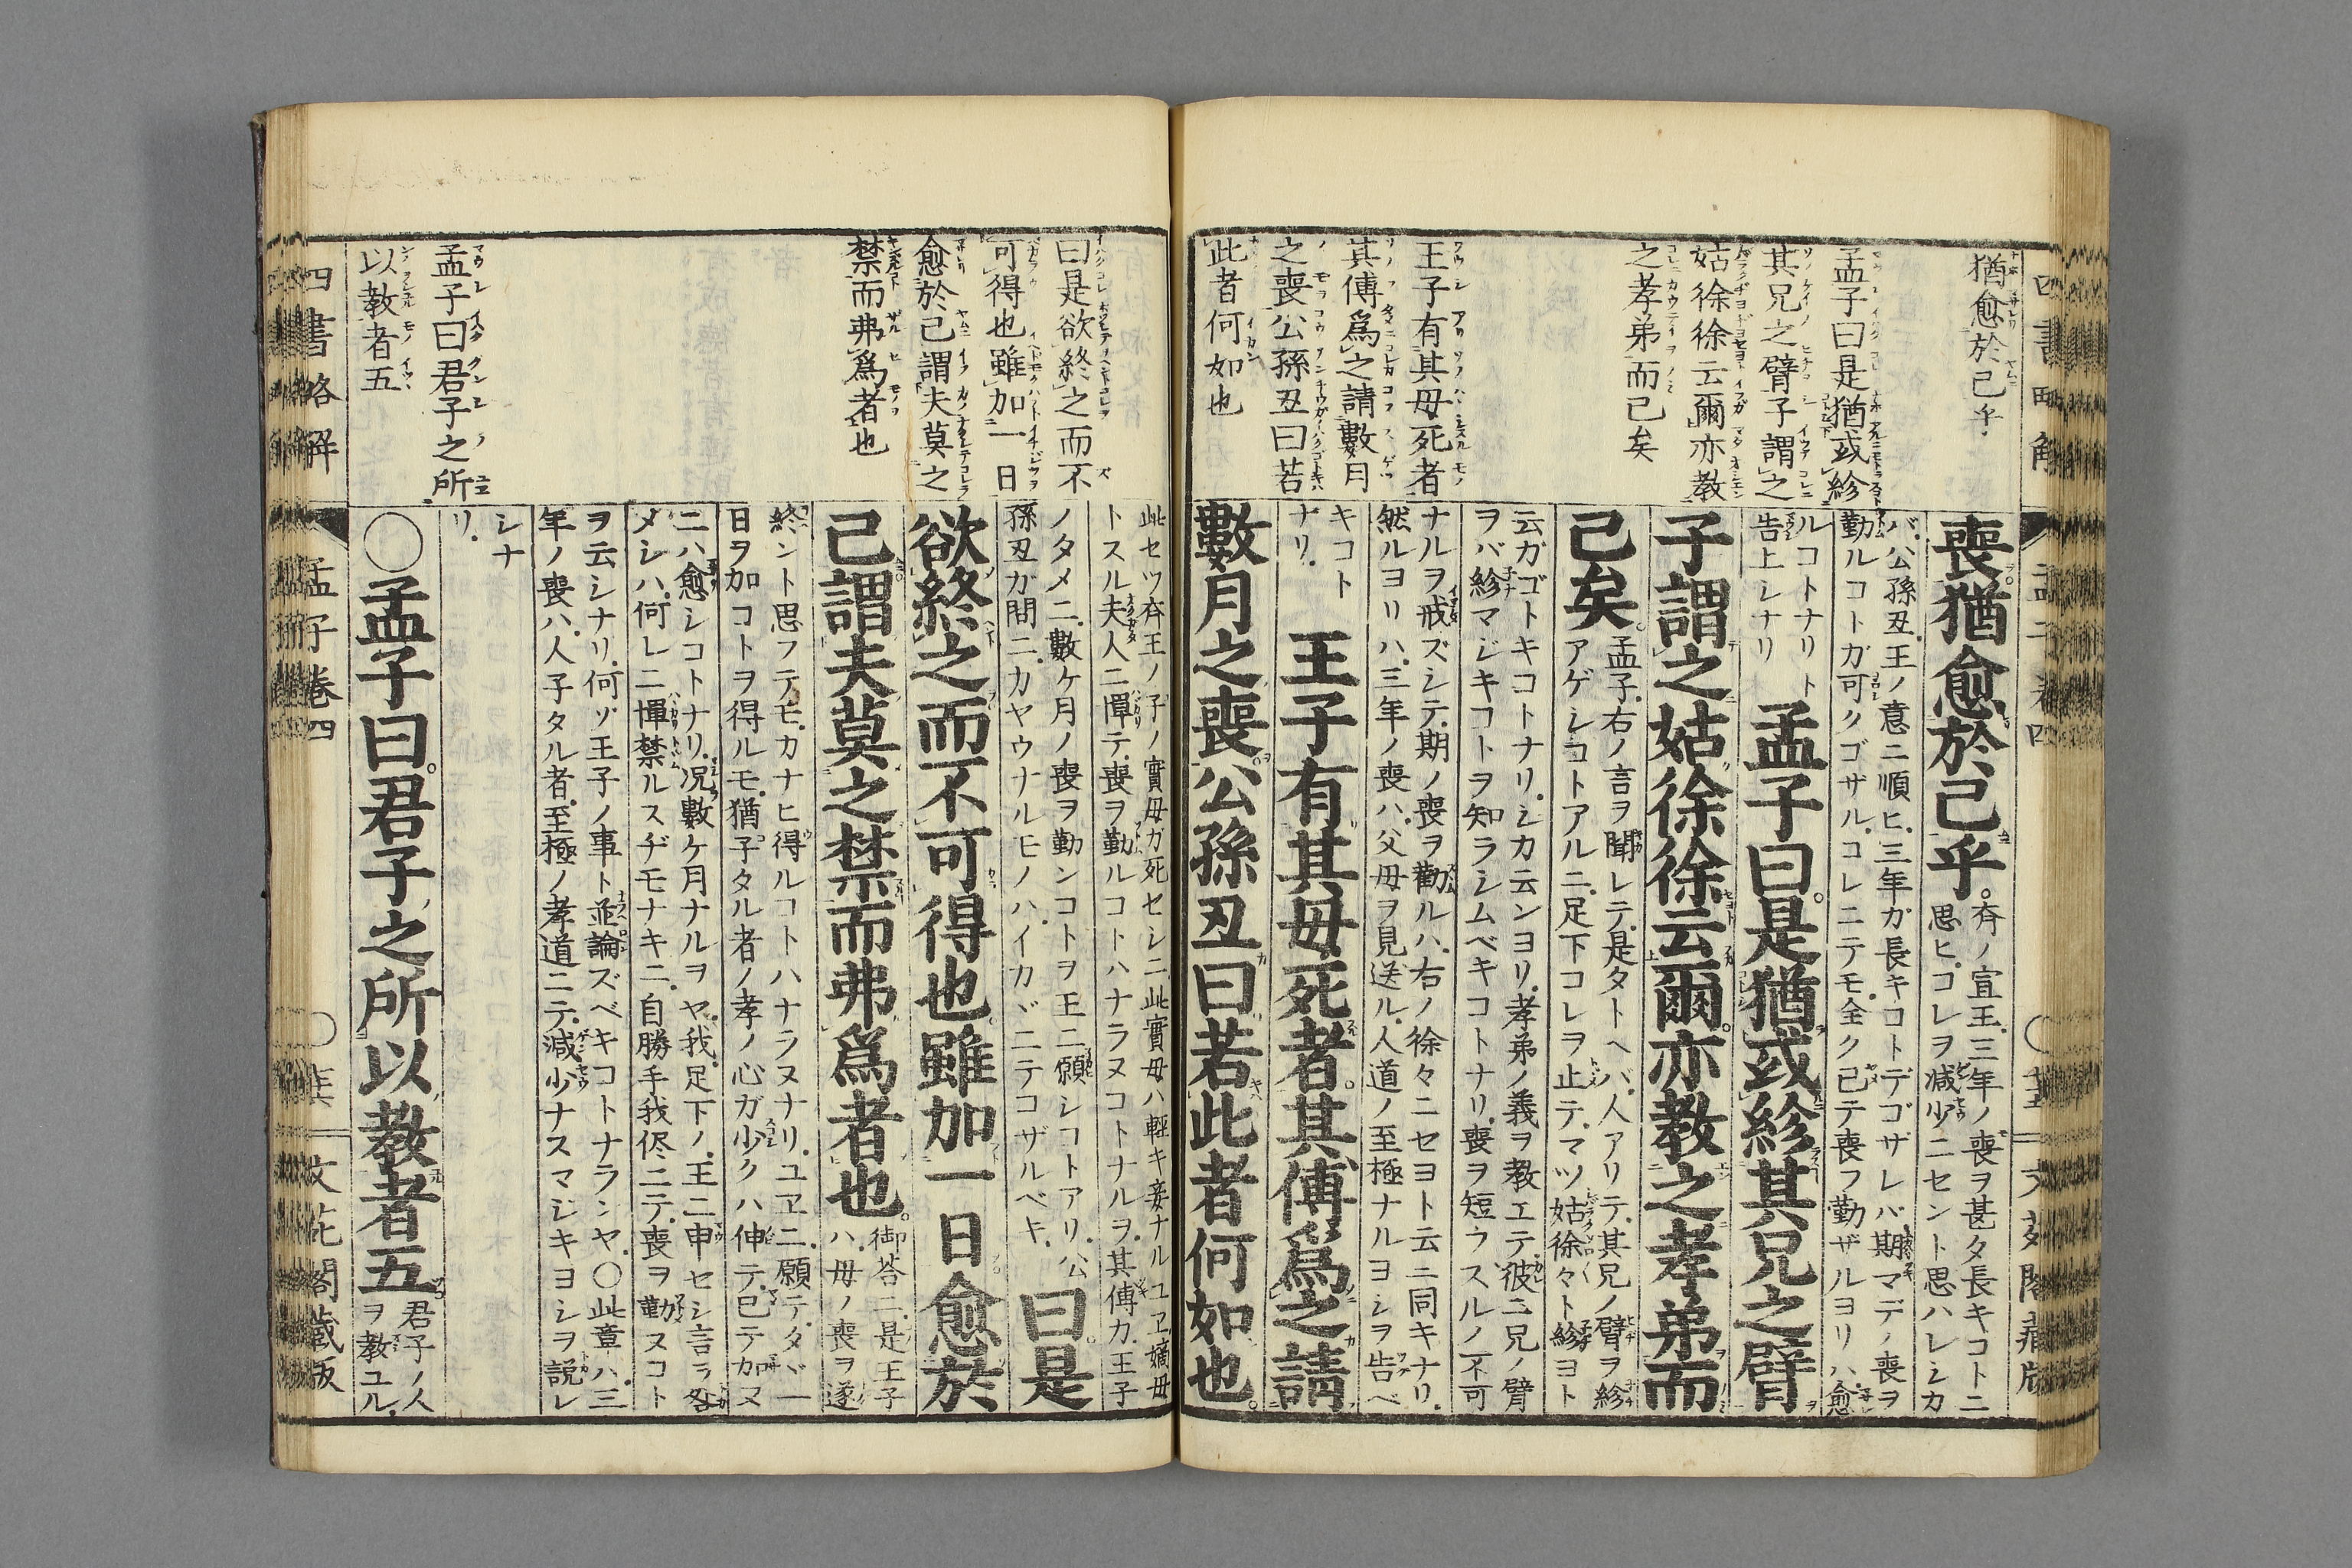 猶愈於己乎
孟子曰是猶或紾
其兄之臂子謂之
姑徐徐云爾亦教
之孝弟而已矣
王子有其母死者
其傅爲之請數月
之喪公孫丑曰若
此者何如也
喪猶愈於己乎。
斉ノ宣王三年ノ喪ヲ甚タ長キコトニ
思ヒコレヲ減少ニセント思ハレシカ
バ公孫丑王ノ意ニ順ヒ三年ガ長キコトデゴザレバ期マデノ喪ヲ
勤ルコトガ可クゴザルコレニテモ全ク已テ喪フ勤ザルヨリハ愈
ルコトナリト
告上シナリ
孟子曰。是猶或紾其兄之臂
子謂之姑徐徐云爾。亦教之孝弟而
已矣。
孟子右ノ言ヲ聞レテ是タトヘバ人アリテ其兄ノ臂ヲ紾
アゲシコトアルニ足下コレヲ止テマツ姑徐々ト紾ヨト
云ガゴトキコトナリシカ云ンヨリ孝弟ノ義ヲ教エテ彼ニ兄ノ臂
ヲバ紾マジキコトヲ知ラシムベキコトナリ喪ヲ短ウスルノ不可
ナルヲ戒ズシテ期ノ喪ヲ勸ルハ右ノ徐々ニセヨト云ニ同キナリ
然ルヨリハ三年ノ喪ハ父母ヲ見送ル人道ノ至極ナルヨシヲ告ベ
キコト
ナリ
王子有其母死者。其傅爲之請
數月之喪。公孫丑曰若此者何如也。
四書略解
孟子卷四
曰是欲終之而不
可得也雖加一日
愈於己謂夫莫之
禁而弗爲者也
孟子曰君子之所
以教者五
此セツ斉王ノ子ノ實母ガ死セシニ此實母ハ輕キ妾ナルユヱ嫡母
トスル夫人ニ憚テ喪ヲ勤ルコトハナラヌコトナルヲ其傅カ王子
ノタメニ數ケ月ノ喪ヲ勤ンコトヲ王ニ願シコトアリ公
孫丑ガ問ニカヤウナルモノハイカヾニテコザルベキ
曰。是
欲終之而不可得也。雖加一日愈於
己。謂夫莫之禁而弗爲者也。
御荅ニ是王子
ハ母ノ喪ヲ遂
終ント思フテモカナヒ得ルコトハナラヌナリユヱニ願テタヾ一
日ヲ加コトヲ得ルモ猶子タル者ノ孝ノ心ガ少クハ伸テ已テ加ヌ
ニハ愈シコトナリ况數ケ月ナルヲヤ我足下ノ王ニ申セシ言ラ咎
メシハ何レニ憚禁ルスヂモナキニ自勝手我侭ニテ喪ヲ勤ヌコト
ヲ云シナリ何ゾ王子ノ事ト並論ズベキコトナランヤ〇此章ハ三
年ノ喪ハ人子タル者至極ノ孝道ニテ減少ナスマジキヨシヲ説レ
シナ
リ
〇孟子曰。君子之所以教者五。
君子ノ人
ヲ教ユル
四書略解
孟子卷四
文花閣藏版